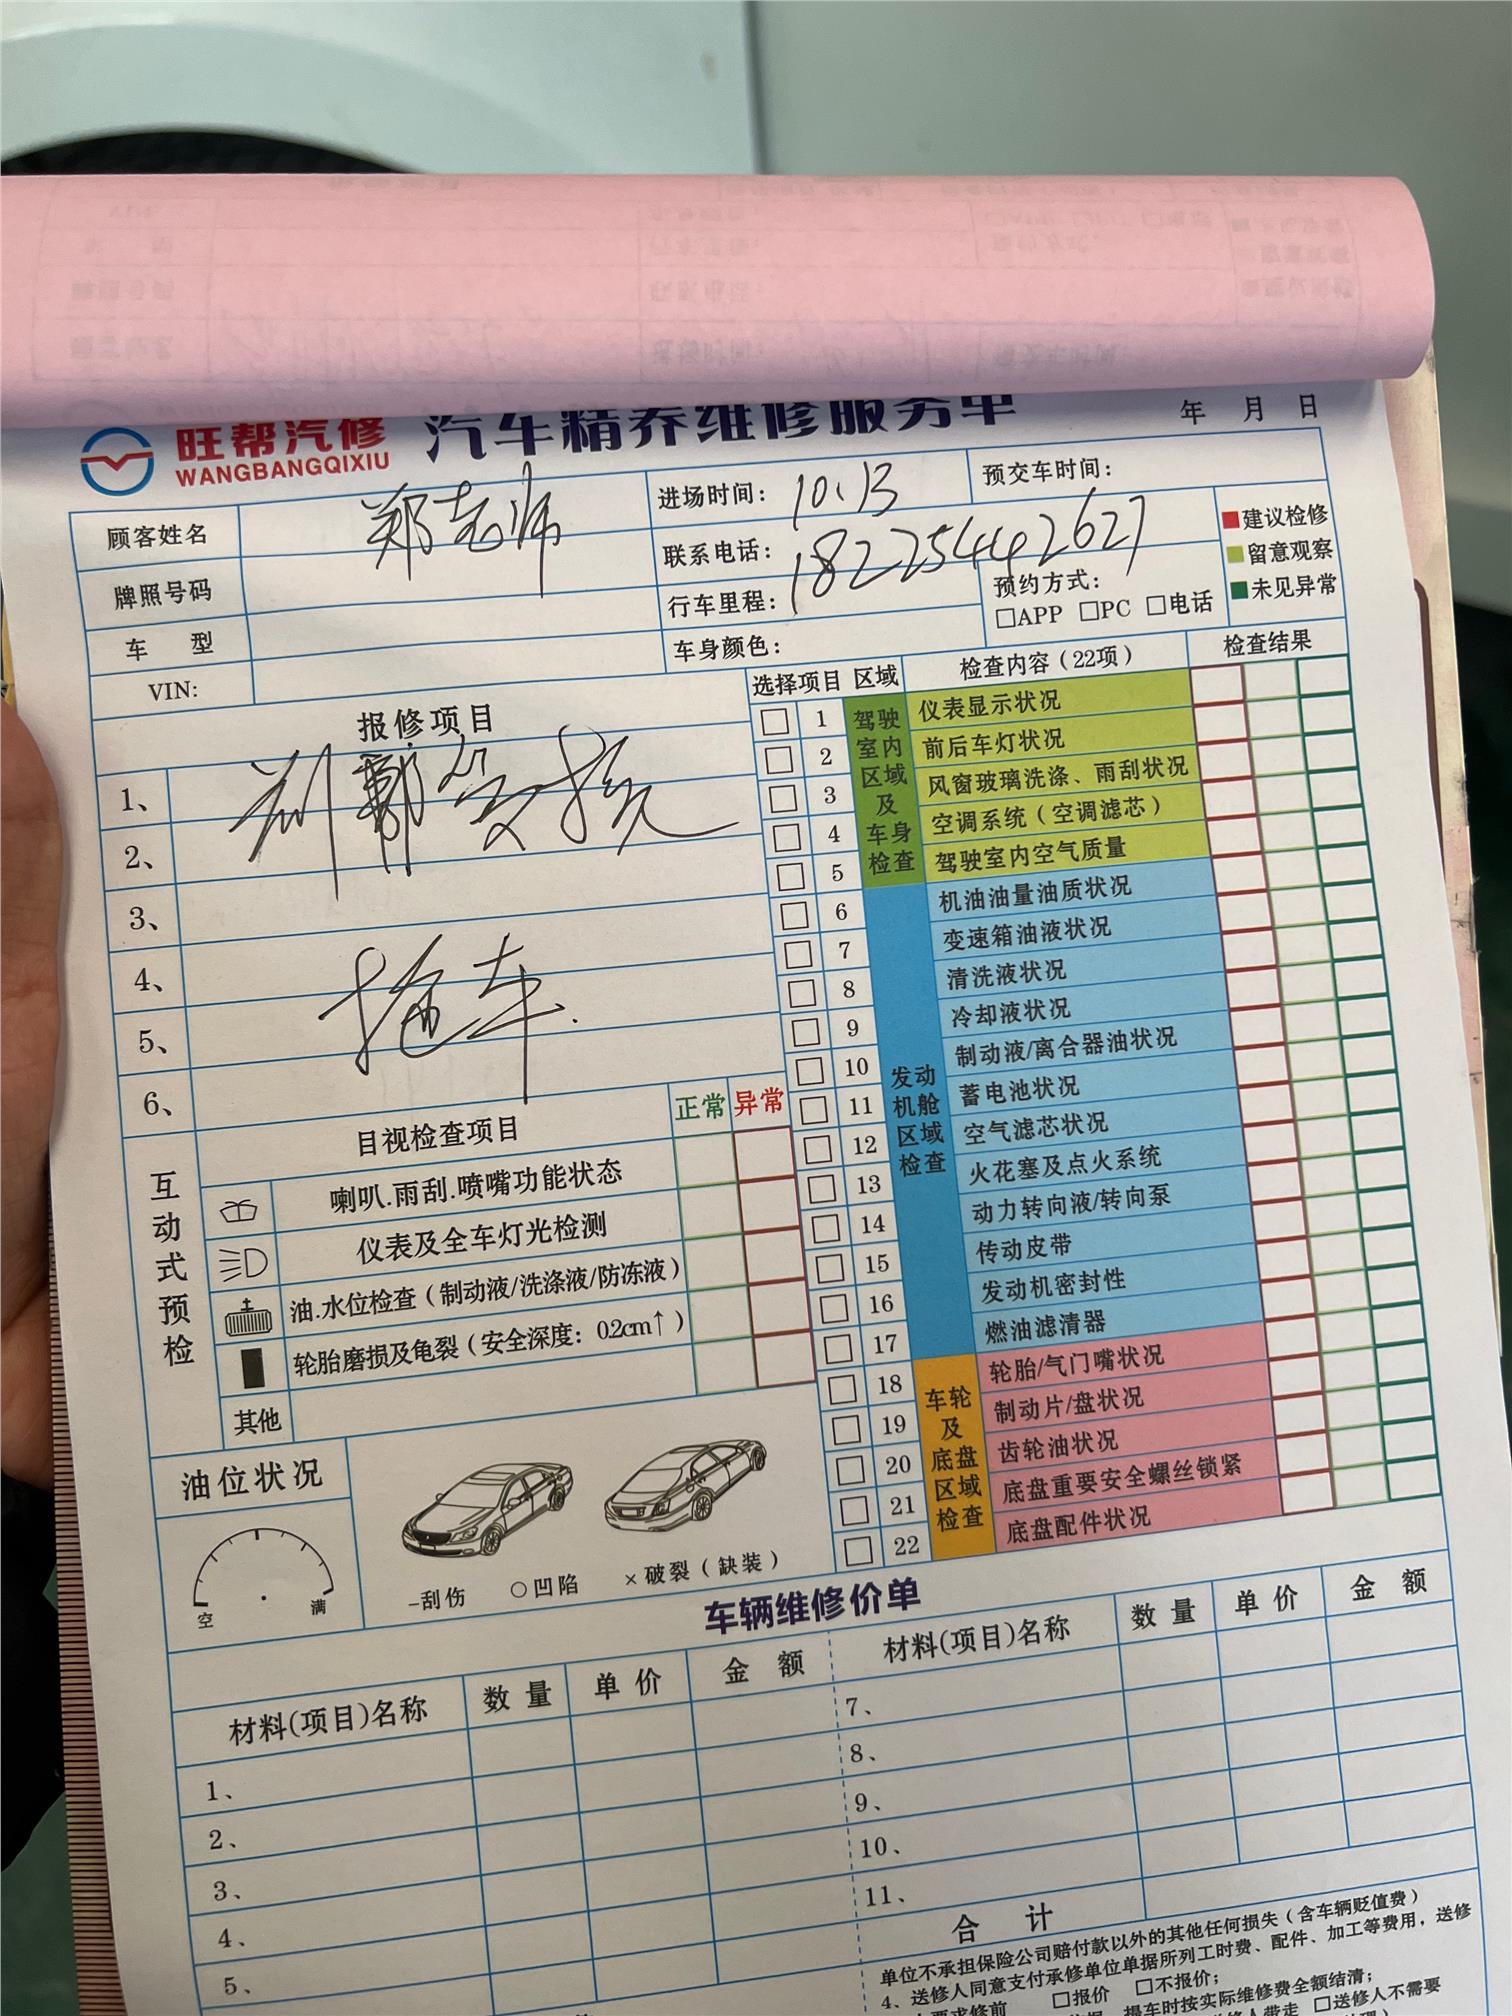 旺帮汽修
WANGBANGQIXIU
汽车精养维修服务单
年 月 日
顾客姓名 郑老师
进场时间: 10.13
预交车时间:
牌照号码
联系电话: 18225442627
行车里程:
预约方式:
□APP □PC □电话
车 型
车身颜色:
VIN:
建议检修
留意观察
未见异常
报修项目
1、
2、
3、
4、
5、
6、
前部受损
拖车.
选择项目 区域 检查内容（22项） 检查结果
驾驶室内区域及车身检查
1 仪表显示状况
2 前后车灯状况
3 风窗玻璃洗涤、雨刮状况
4 空调系统（空调滤芯）
5 驾驶室内空气质量
发动机舱区域检查
6 机油油量油质状况
7 变速箱油液状况
8 清洗液状况
9 冷却液状况
10 制动液/离合器油状况
11 蓄电池状况
12 空气滤芯状况
13 火花塞及点火系统
14 动力转向液/转向泵
15 传动皮带
16 发动机密封性
17 燃油滤清器
车轮及底盘区域检查
18 轮胎/气门嘴状况
19 制动片/盘状况
20 齿轮油状况
21 底盘重要安全螺丝锁紧
22 底盘配件状况
互动式预检
目视检查项目 正常 异常
喇叭.雨刮.喷嘴功能状态
仪表及全车灯光检测
油.水位检查（制动液/洗涤液/防冻液）
轮胎磨损及龟裂（安全深度：0.2cm↑）
其他
油位状况
空 满
–刮伤 ○凹陷 ×破裂（缺装）
车辆维修价单
材料(项目)名称 数 量 单 价 金 额
材料(项目)名称 数 量 单 价 金 额
1、
2、
3、
4、
5、
7、
8、
9、
10、
11、
合 计
单位不承担保险公司赔付款以外的其他任何损失（含车辆贬值费）
4、送修人同意支付承修单位单据所列工时费、配件、加工等费用，送修
要求修前 □报价 □不报价；
提车时按实际维修费全额结清；
送修人带走 □送修人不需要